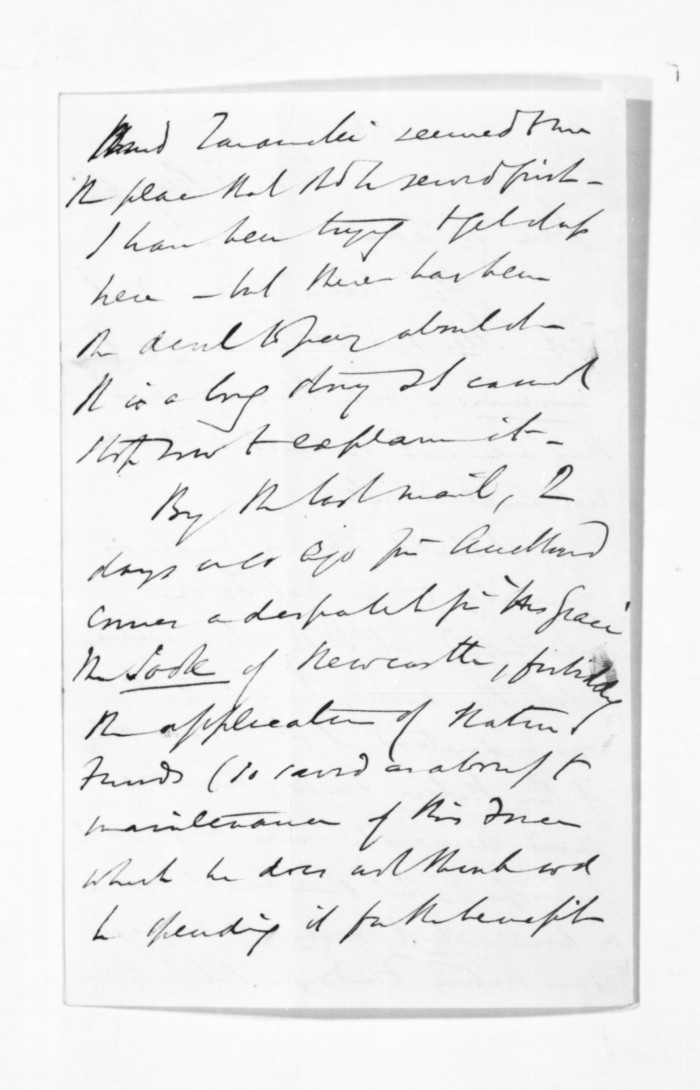 and Taranaki seemed to me
the place that shd be served first -
I have been trying to get cheap
here - but there has been
the devil to pay about it -
It is a long story & I cannot
stop now to explain it -
By the last mail, 2
days ago fm Auckland
comes a despatch fm "His Grace
the Dook of Newcastle, forbidding
the application of Native
Funds (so saved as above) to
maintenance of this Force
which he does not think wod
be spending it for the benefit